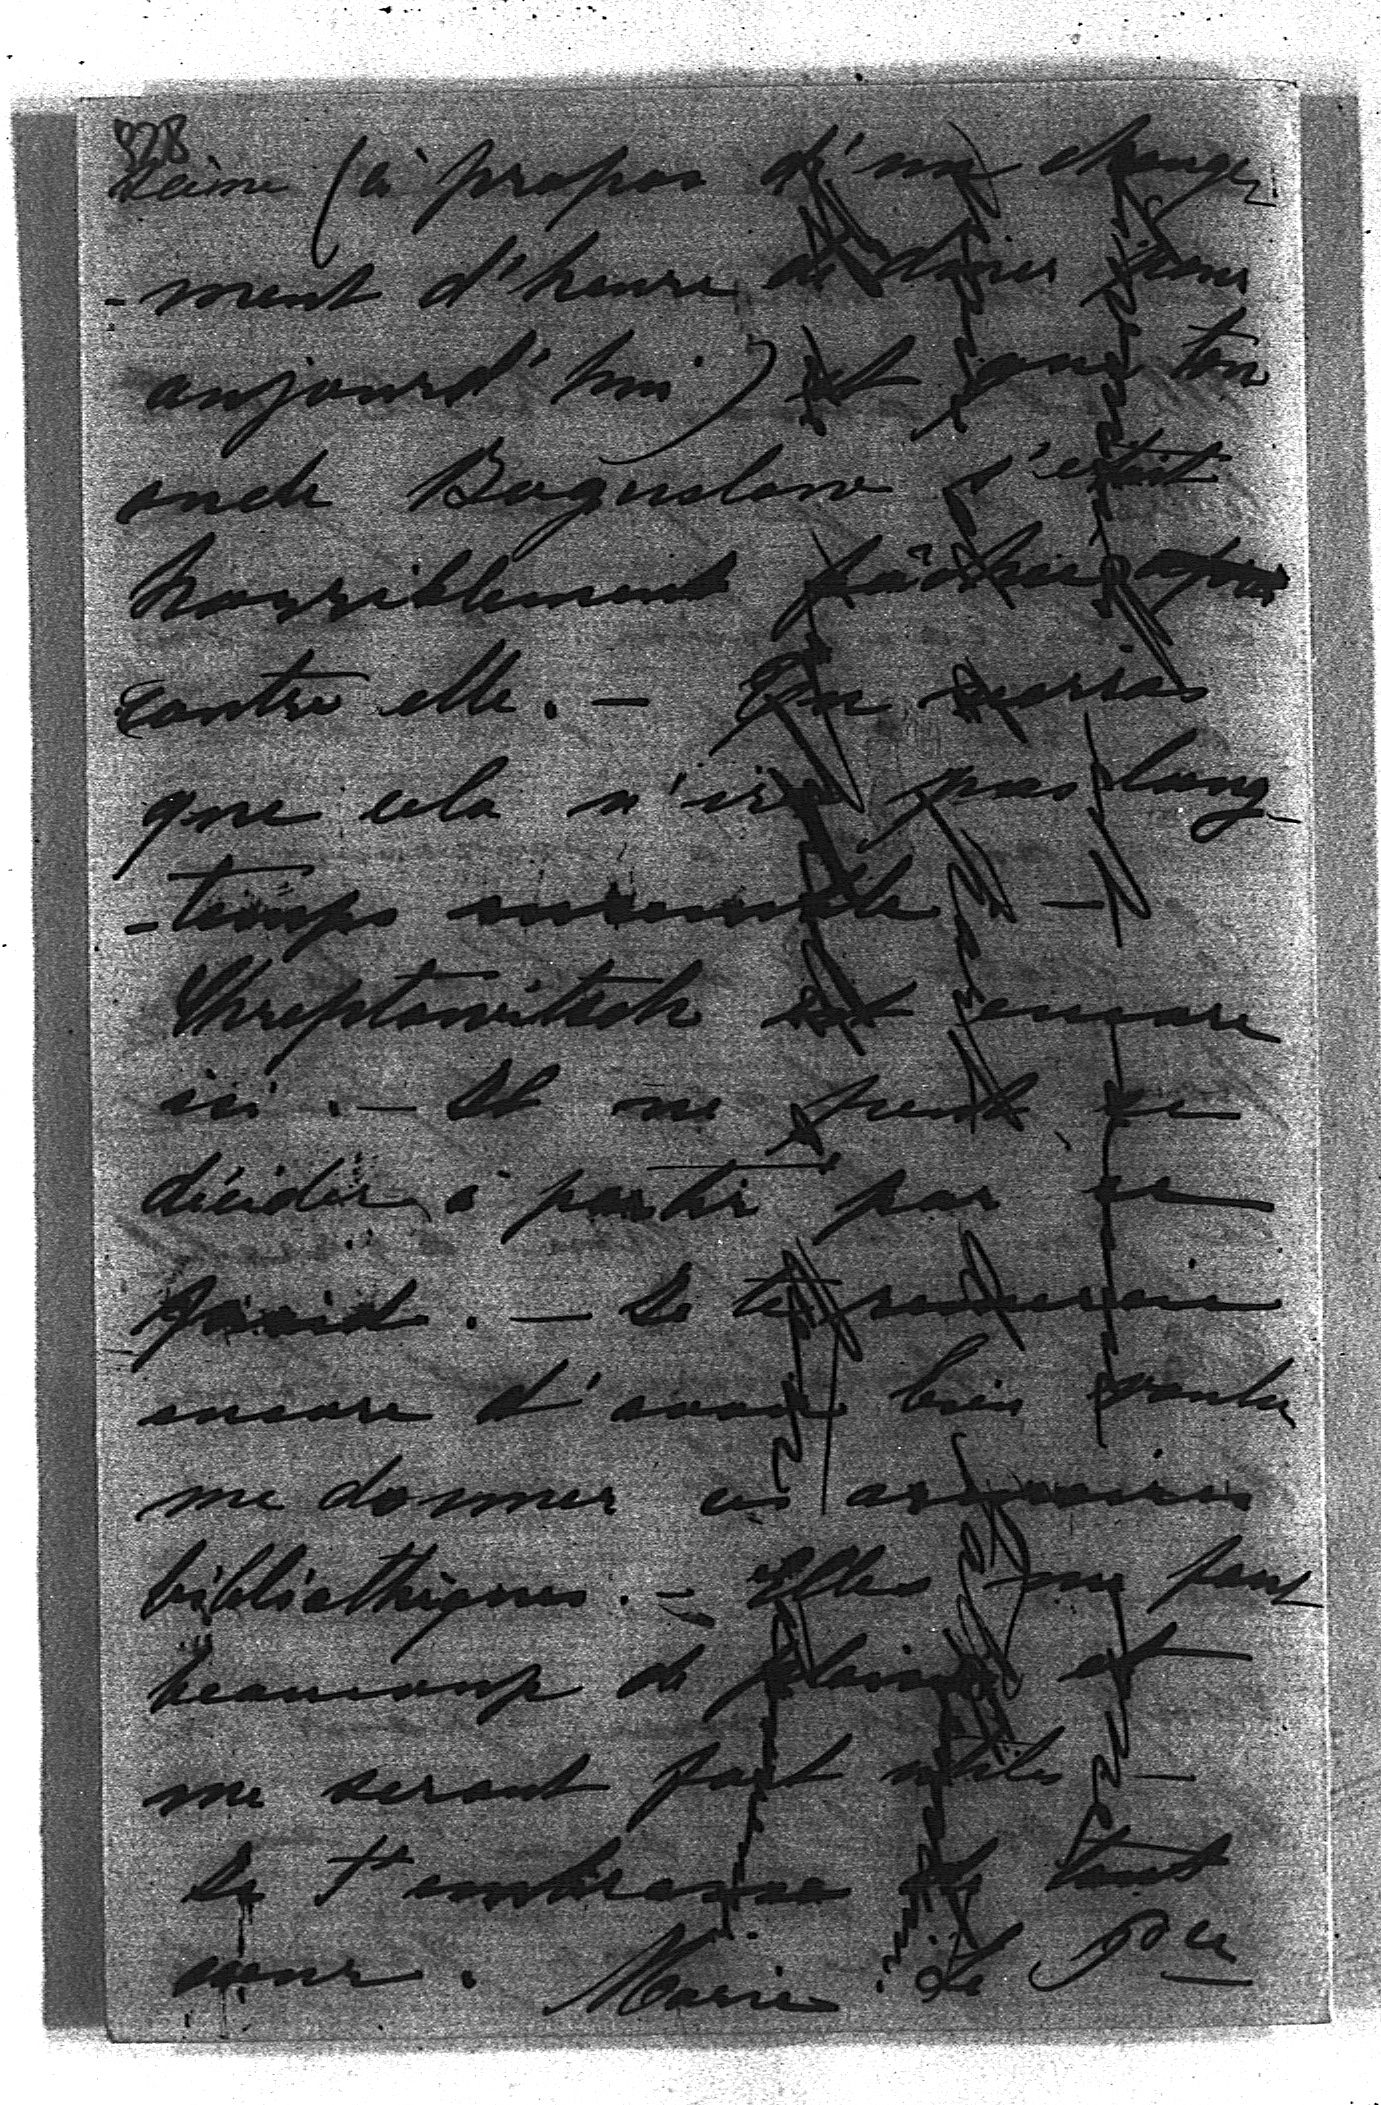 328
scène (à propos d'un change-
-ment d'heure de diner pour
aujourd'hui) et que ton
oncle Boguslaw s'était
horriblement fâché
contre elle. – Tu verras
que cela n'ira pas long-
-temps ensemble –
Chreptowitsch est encore
ici. – Il ne peut se
décider à partir par ce
froid. – Je te remercie
encore d'avoir bien voulu
me donner ces armoires
bibliothèques. – Elles me font
beaucoup de plaisir et
me seront fort utiles –
Je t'embrasse de tout
cœur. Marie de